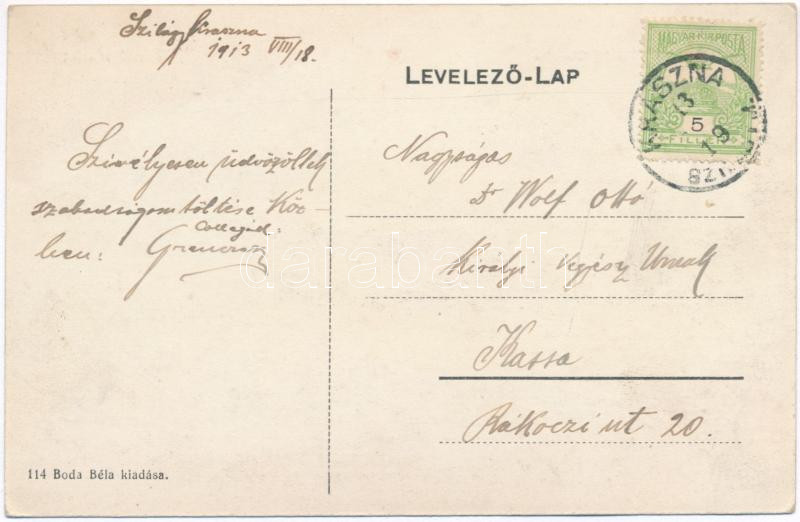 Szilágy Kraszna
1913 VIII/18.
LEVELEZŐ-LAP
MAGYAR KIR. POSTA
5
FILLÉR
KRASZNA
13
19
Szivélyesen üdvözöllek
szabadságom töltése Köz-
ben:
Nagyságos
Dr Wolf Ottó
Királyi Vegyész Urnak
Kassa
Rákoczi ut 20.
114 Boda Béla kiadása.
darabanth